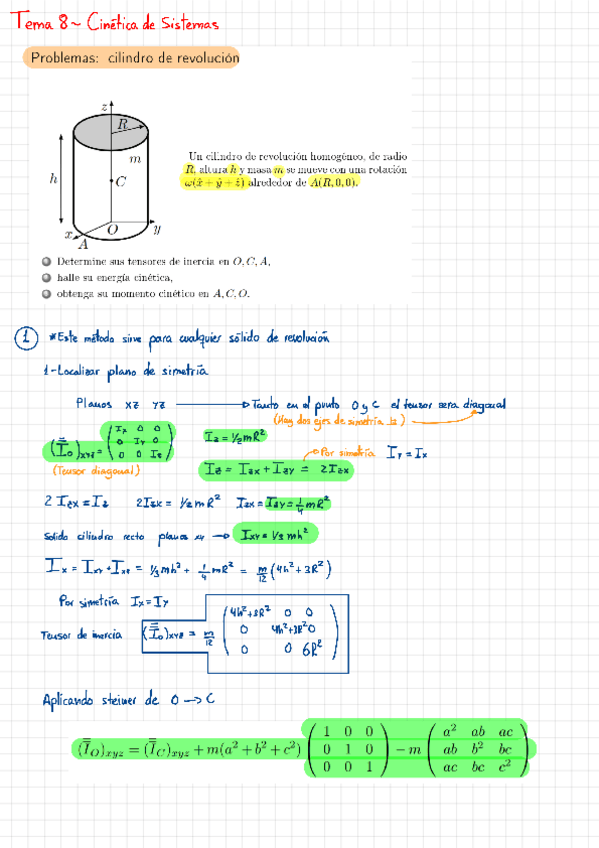 Tema 8 ~ Cinética de Sistemas
Problemas: cilindro de revolución
z
R
m
h
C
x
O
y
A
Un cilindro de revolución homogéneo, de radio
R, altura h y masa m se mueve con una rotación
ω(x̂ + ŷ + ẑ) alrededor de A(R, 0, 0).
1 Determine sus tensores de inercia en O, C, A,
2 halle su energía cinética,
3 obtenga su momento cinético en A, C, O.
1 *Este método sirve para cualquier sólido de revolución
1-Localizar plano de simetría
Planos xz yz → Tanto en el punto O y C el tensor sera diagonal
(Hay dos ejes de simetría )
(I̿o)xyz = ( Ix 0 0 / 0 Iy 0 / 0 0 Iz )
(Tensor diagonal)
Iz = 1/2 mR²
Por simetría Iy = Ix
Iz = Izx + Izy = 2Izx
2 Izx = Iz 2Izx = 1/2 mR² Izx = Izy = 1/4 mR²
Solido cilindro recto planos xy → Ixy = 1/3 mh²
Ix = Ixy + Ixz = 1/3 mh² + 1/4 mR² = m/12 (4h² + 3R²)
Por simetría Ix = Iy
Tensor de inercia (I̿o)xyz = m/12 ( 4h²+3R² 0 0 / 0 4h²+3R² 0 / 0 0 6R² )
Aplicando steiner de O → C
(I̿O)xyz = (I̿C)xyz + m(a² + b² + c²) ( 1 0 0 / 0 1 0 / 0 0 1 ) − m ( a² ab ac / ab b² bc / ac bc c² )